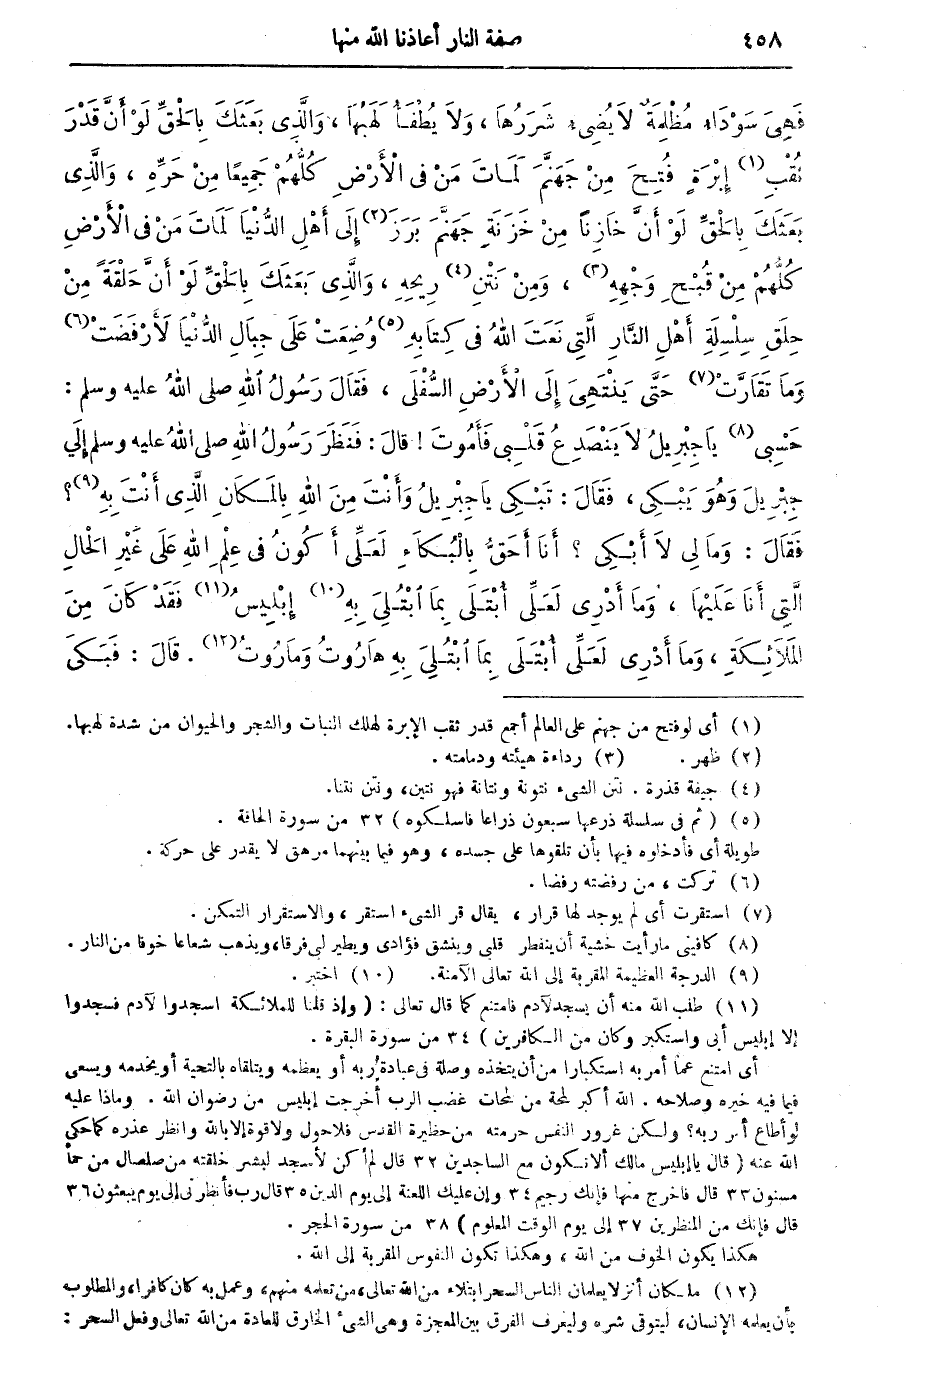 ٤٥٨ صفة النار أعاذنا الله منها
فَهِىَ سَوْدَاءُ مُظْلِمَةٌ لَا يُضِىءُ شَرَرُهَا ، وَلَا يُطْفَأُ لَهَبُهَا ، وَالَّذِى بَعَثَكَ بِالْحَقِّ لَوْ أَنَّ قَدْرَ
ثُقْبِ (١) إِبْرَةٍ فُتِحَ مِنْ جَهَنَّمَ لَمَاتَ مَنْ فِى الْأَرْضِ كُلُّهُمْ جَمِيعًا مِنْ حَرِّهِ ، وَالَّذِى
بَعَثَكَ بِالْحَقِّ لَوْ أَنَّ خَازِنًا مِنْ خَزَنَةِ جَهَنَّمَ بَرَزَ (٢) إِلَى أَهْلِ الدُّنْيَا لَمَاتَ مَنْ فِى الْأَرْضِ
كُلُّهُمْ مِنْ قُبْحِ وَجْهِهِ (٣) ، وَمِنْ نَتْنِ (٤) رِيحِهِ ، وَالَّذِى بَعَثَكَ بِالْحَقِّ لَوْ أَنَّ حَلْقَةً مِنْ
حِلَقِ سِلْسِلَةِ أَهْلِ النَّارِ الَّتِى نَعَتَ اللهُ فِى كِتَابِهِ (٥) وُضِعَتْ عَلَى جِبَالِ الدُّنْيَا لَأَرْفَضَتْ (٦)
وَمَا تَقَارَّتْ (٧) حَتَّى يَنْتَهِىَ إِلَى الْأَرْضِ السُّفْلَى ، فَقَالَ رَسُولُ اللهِ صلى اللهُ عليه وسلم :
حَسْبِى (٨) يَاجِبْرِيلُ لَا يَنْصَدِعُ قَلْبِى فَأَمُوتَ ! قالَ : فَنَظَرَ رَسُولُ اللهِ صلى اللهُ عليه وسلم إِلَى
جِبْرِيلَ وَهُوَ يَبْكِى ، فَقَالَ : تَبْكِى يَاجِبْرِيلُ وَأَنْتَ مِنَ اللهِ بِالْمَكَانِ الَّذِى أَنْتَ بِهِ (٩) ؟
فَقَالَ : وَمَا لِى لَا أَبْكِى ؟ أَنَا أَحَقُّ بِالْبُكَاءِ لَعَلِّى أَكُونُ فِى عِلْمِ اللهِ عَلَى غَيْرِ الْحَالِ
الَّتِى أَنَا عَلَيْهَا ، وَمَا أَدْرِى لَعَلِّى أُبْتَلَى بِمَا ابْتُلِىَ بِهِ (١٠) إِبْلِيسُ (١١) فَقَدْ كَانَ مِنَ
الْمَلَائِكَةِ ، وَمَا أَدْرِى لَعَلِّى أُبْتَلَى بِمَا ابْتُلِىَ بِهِ هَارُوتُ وَمَارُوتُ (١٢) . قَالَ : فَبَكَى
(١) أى لو فتح من جهنم على العالم أجمع قدر ثقب الإبرة لهلك النبات والشجر والحيوان من شدة لهبها.
(٢) ظهر . (٣) رداءة هيئته ودمامته .
(٤) جيفة قذرة . نتن الشىء نتونة ونتانة فهو نتين، ونتن نتنا.
(٥) ( ثم فى سلسلة ذرعها سبعون ذراعا فاسلكوه ) ٣٢ من سورة الحاقة .
طويلة أى فأدخلوه فيها بأن تلقوها على جسده ، وهو فيما بينهما مرهق لا يقدر على حركة .
(٦) تركت ، من رفضته رفضا .
(٧) استقرت أى لم يوجد لها قرار ، يقال قر الشىء استقر ، والاستقرار التمكن .
(٨) كافينى ما رأيت خشية أن ينفطر قلبى وينشق فؤادى ويطير لبى فرقا، ويذهب شعاعا خوفا من النار .
(٩) الدرجة العظيمة المقربة إلى الله تعالى الآمنة. (١٠) اختبر .
(١١) طلب الله منه أن يسجد لآدم فامتنع كما قال تعالى : ( وإذ قلنا للملائكة اسجدوا لآدم فسجدوا
إلا إبليس أبى واستكبر وكان من الكافرين ) ٣٤ من سورة البقرة .
أى امتنع عما أمر به استكبارا من أن يتخذه وصلة فى عبادة ربه أو يعظمه ويتلقاه بالتحية أو يخدمه ويسعى
فيما فيه خيره وصلاحه . الله أكبر لمحة من لمحات غضب الرب أخرجت إبليس من رضوان الله . وماذا عليه
لو أطاع أمر ربه؟ ولكن غرور النفس حرمته من حظيرة القدس فلا حول ولا قوة إلا بالله وانظر عذره كما حكى
الله عنه ( قال يا إبليس مالك ألا تكون مع الساجدين ٣٢ قال لم أكن لأسجد لبشر خلقته من صلصال من حمأ
مسنون ٣٣ قال فاخرج منها فإنك رجيم ٣٤ وإن عليك اللعنة إلى يوم الدين ٣٥ قال رب فأنظرنى إلى يوم يبعثون ٣٦
قال فإنك من المنظرين ٣٧ إلى يوم الوقت المعلوم ) ٣٨ من سورة الحجر .
هكذا يكون الخوف من الله ، وهكذا تكون النفوس المقربة إلى الله .
(١٢) ملكان أنزلا يعلمان الناس السحر ابتلاء من الله تعالى، من تعلمه منهم، وعمل به كان كافرا، والمطلوب
بأن يعلمه الإنسان، ليتوقى شره وليعرف الفرق بين المعجزة وهى الشىء الخارق للعادة من الله تعالى وفعل السحر :